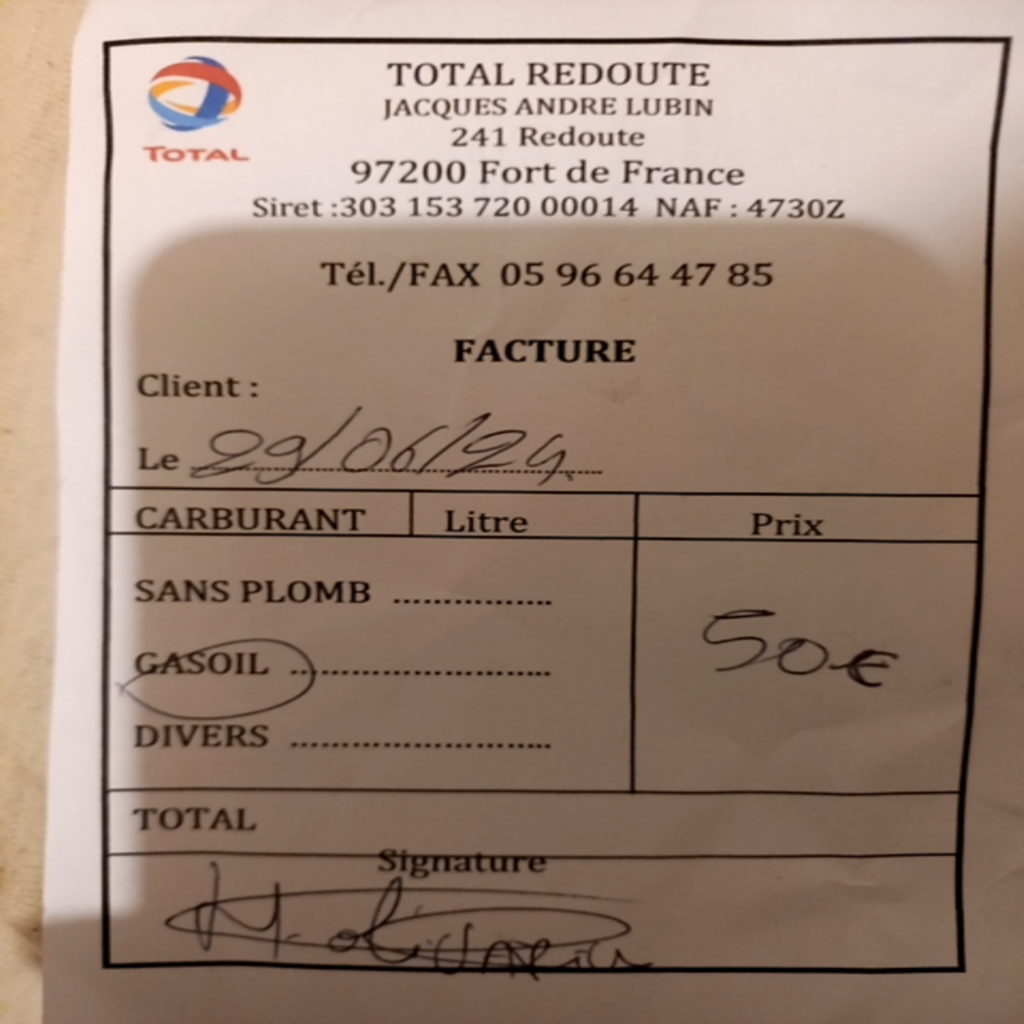 TOTAL
TOTAL REDOUTE
JACQUES ANDRE LUBIN
241 Redoute
97200 Fort de France
Siret :303 153 720 00014 NAF : 4730Z
Tél./FAX 05 96 64 47 85
FACTURE
Client :
Le 29/06/24
CARBURANT Litre Prix
SANS PLOMB ................
GASOIL ..........................
50€
DIVERS ..........................
TOTAL
Signature